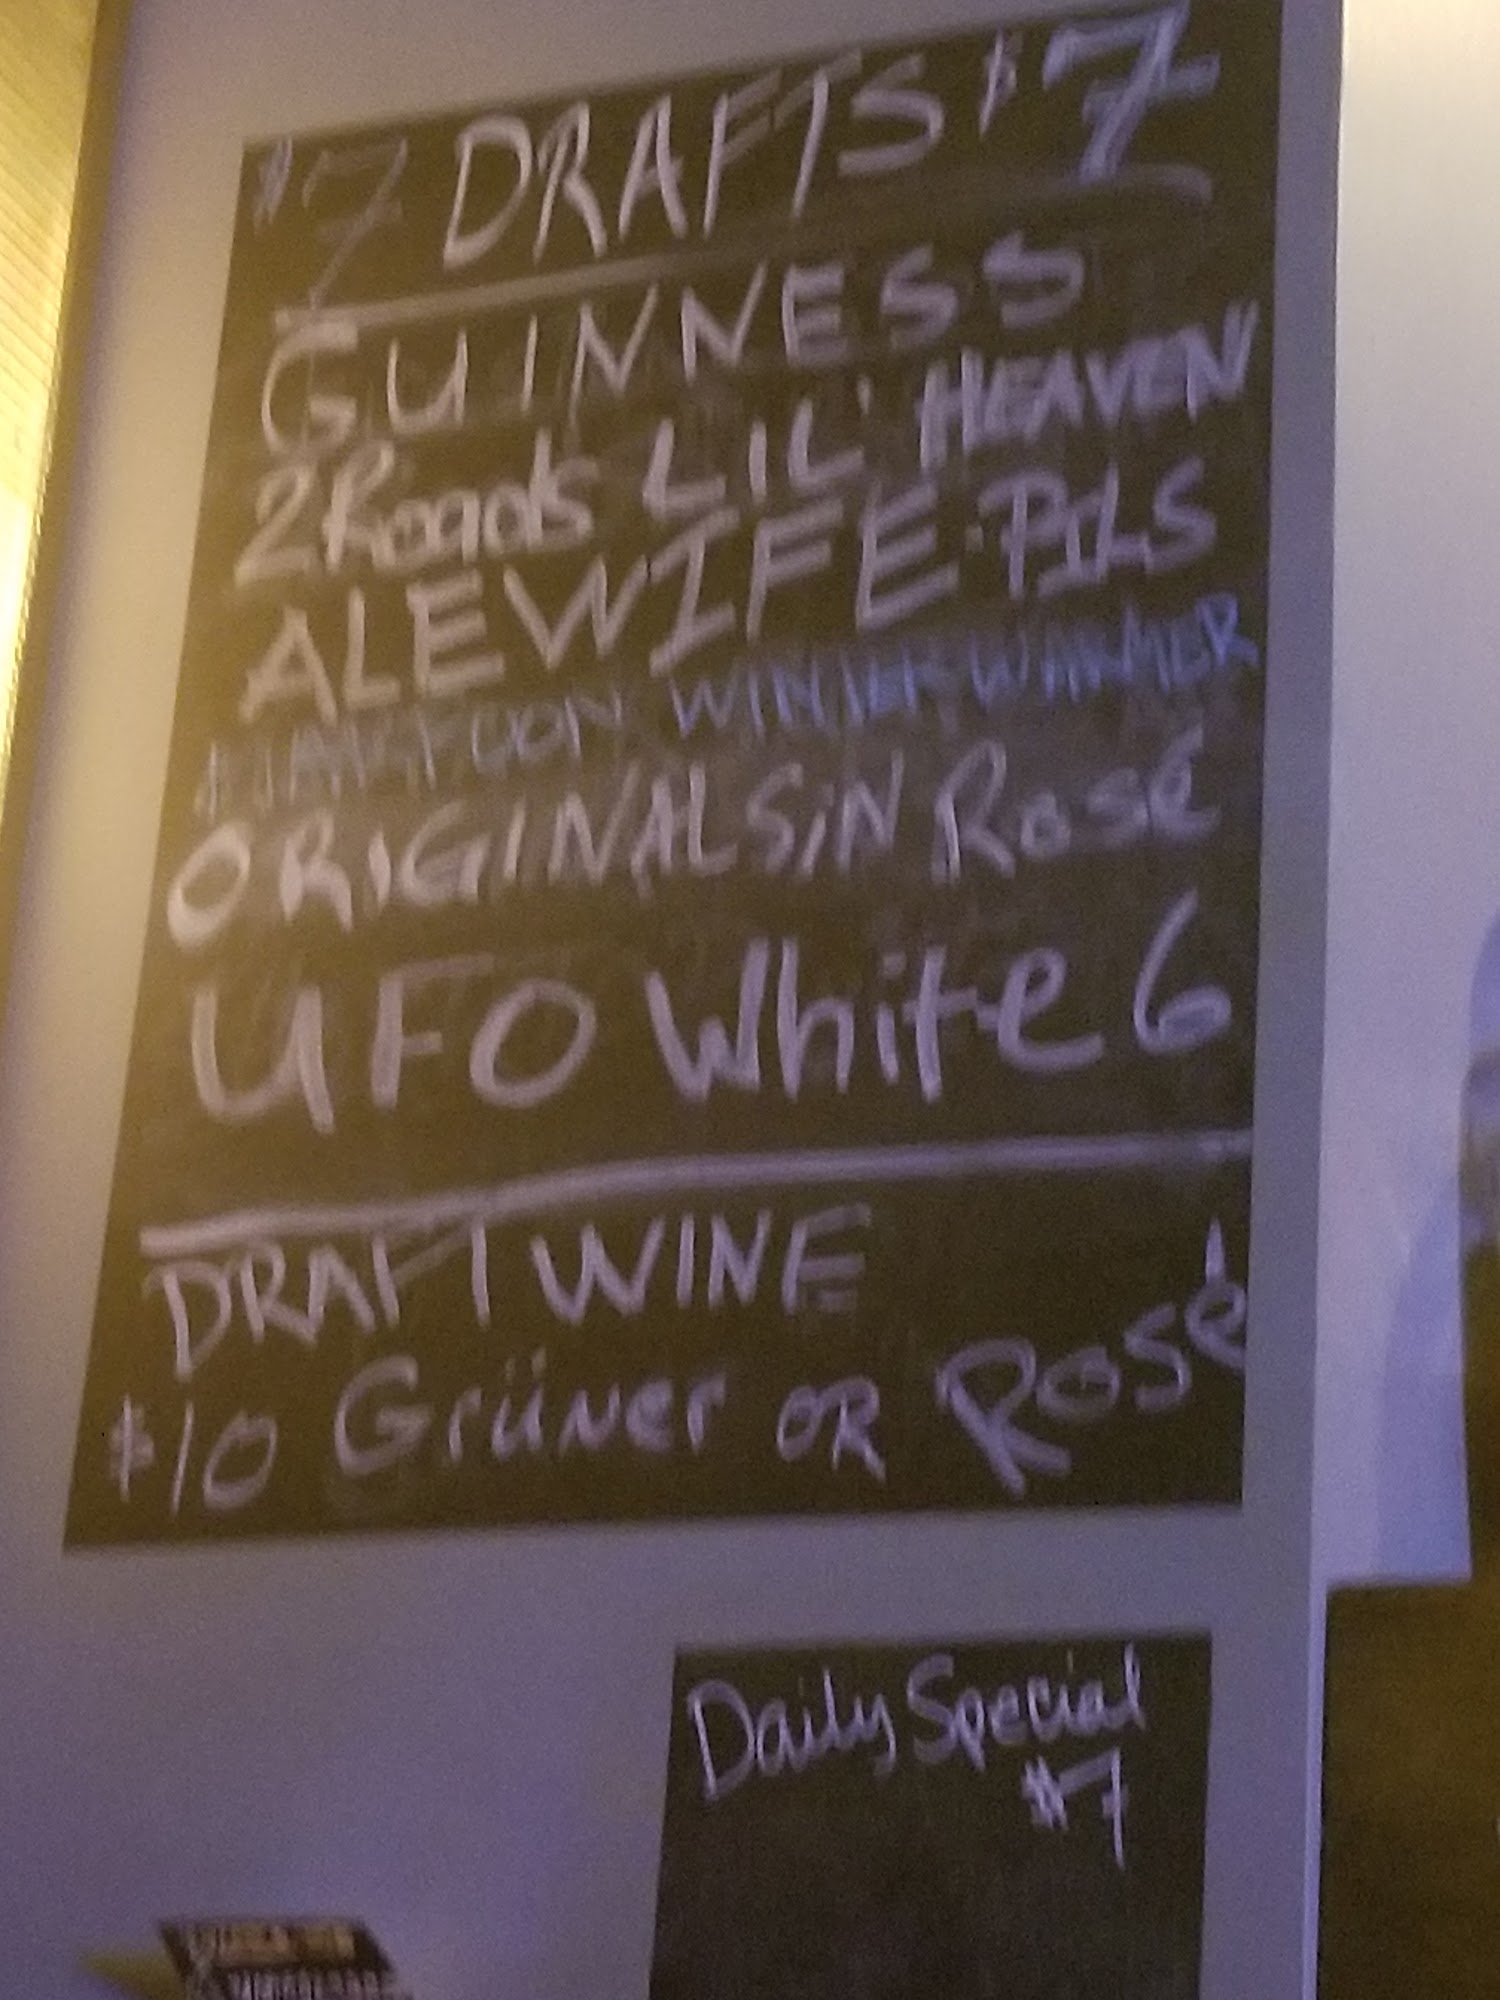 $7 DRAFTS $7
GUINNESS
2Roads LIL' HEAVEN
ALEWIFE PILS
WINTER WARMER
ORIGINAL SiN Rosé
UFO White 6
DRAFT WINE
$10 Grüner OR Rosé
Daily Special
$7